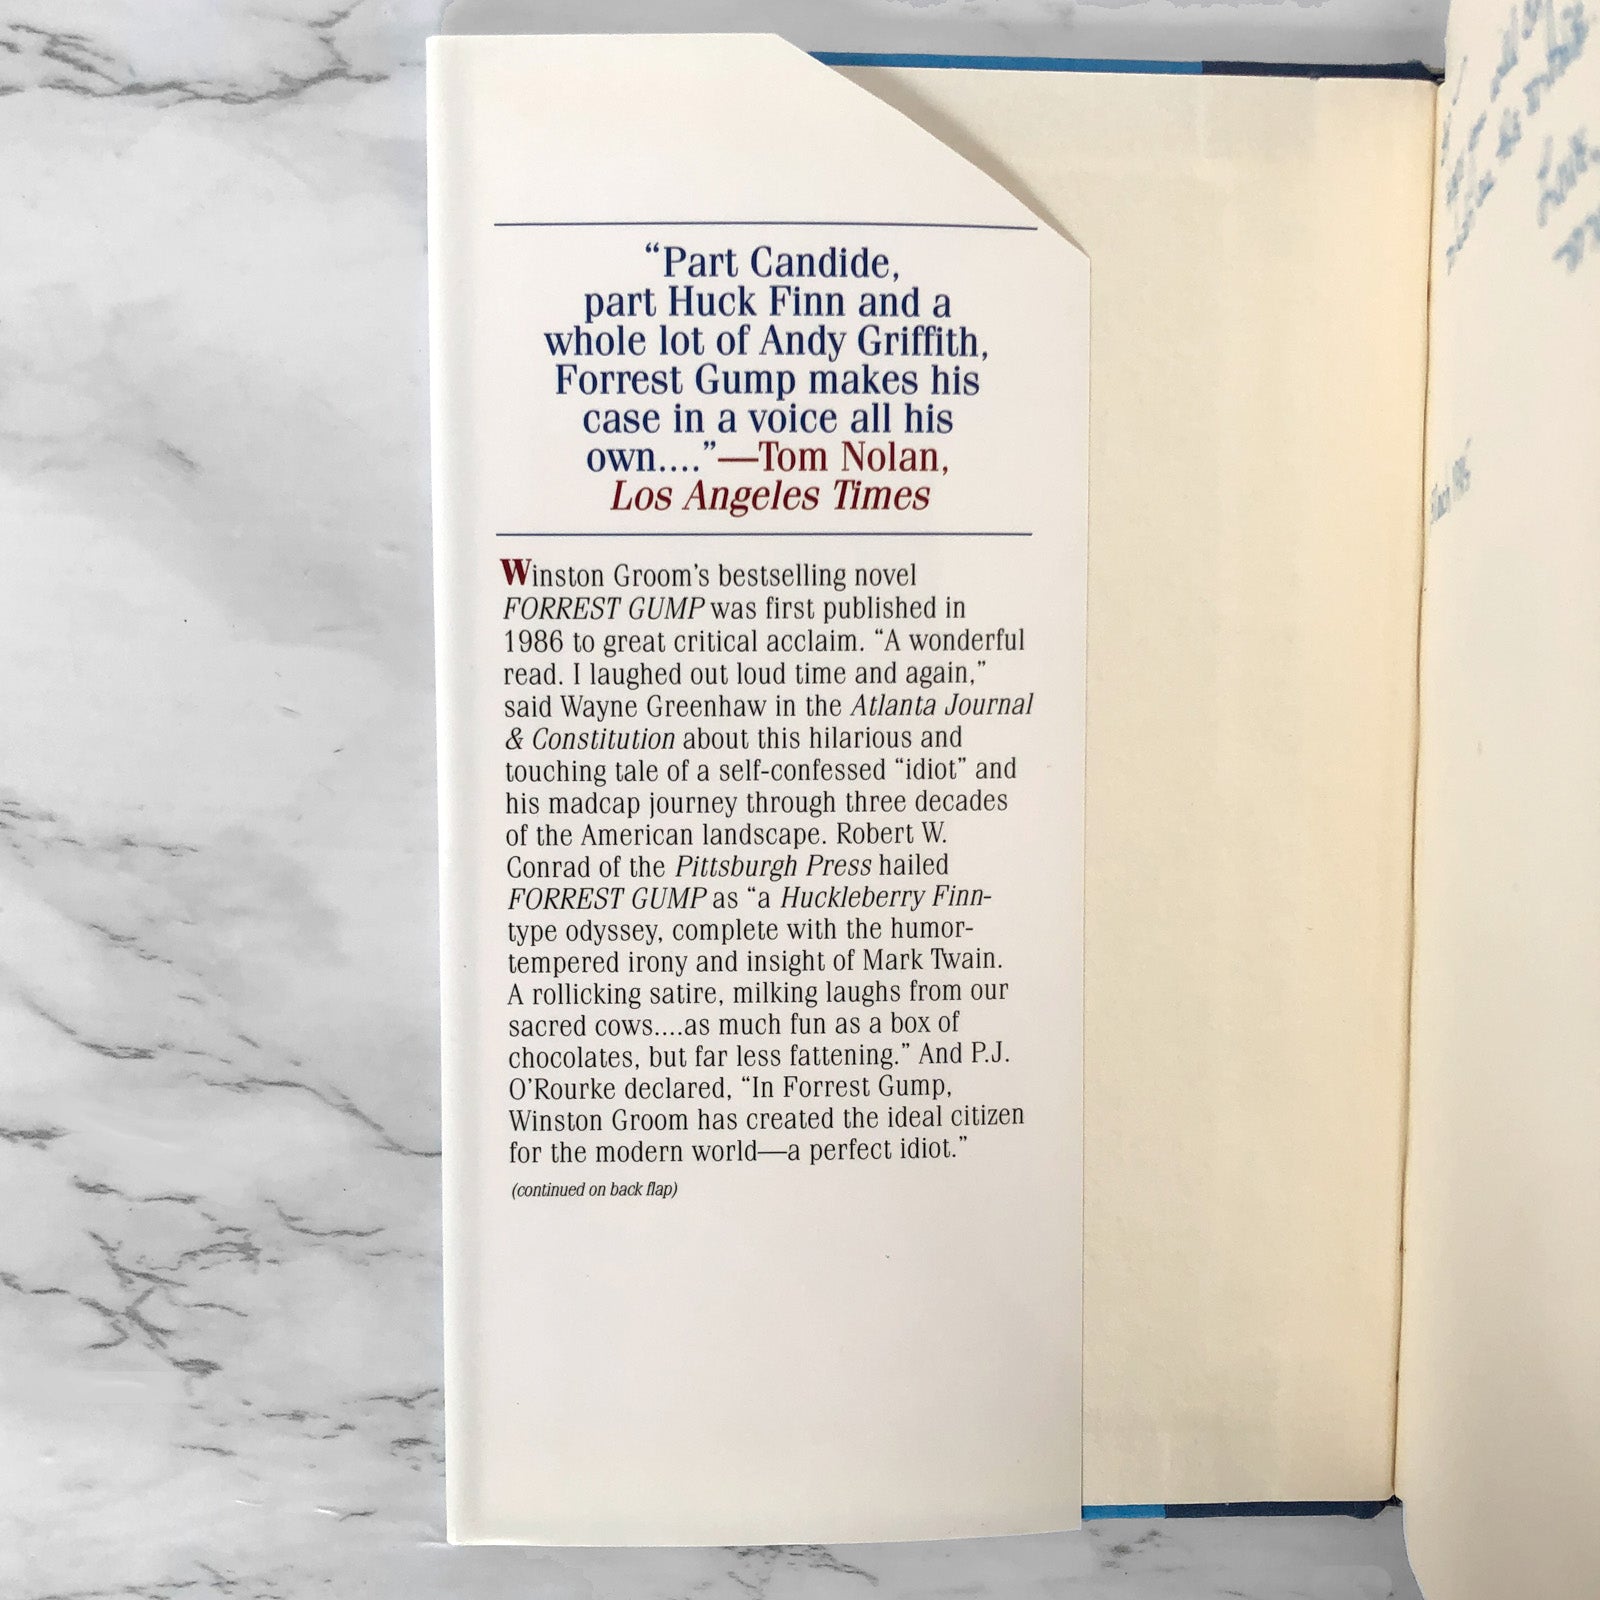 “Part Candide,
part Huck Finn and a
whole lot of Andy Griffith,
Forrest Gump makes his
case in a voice all his
own....”—Tom Nolan,
Los Angeles Times
Winston Groom’s bestselling novel
FORREST GUMP was first published in
1986 to great critical acclaim. “A wonderful
read. I laughed out loud time and again,”
said Wayne Greenhaw in the Atlanta Journal
& Constitution about this hilarious and
touching tale of a self-confessed “idiot” and
his madcap journey through three decades
of the American landscape. Robert W.
Conrad of the Pittsburgh Press hailed
FORREST GUMP as “a Huckleberry Finn-
type odyssey, complete with the humor-
tempered irony and insight of Mark Twain.
A rollicking satire, milking laughs from our
sacred cows....as much fun as a box of
chocolates, but far less fattening.” And P.J.
O’Rourke declared, “In Forrest Gump,
Winston Groom has created the ideal citizen
for the modern world—a perfect idiot.”
(continued on back flap)